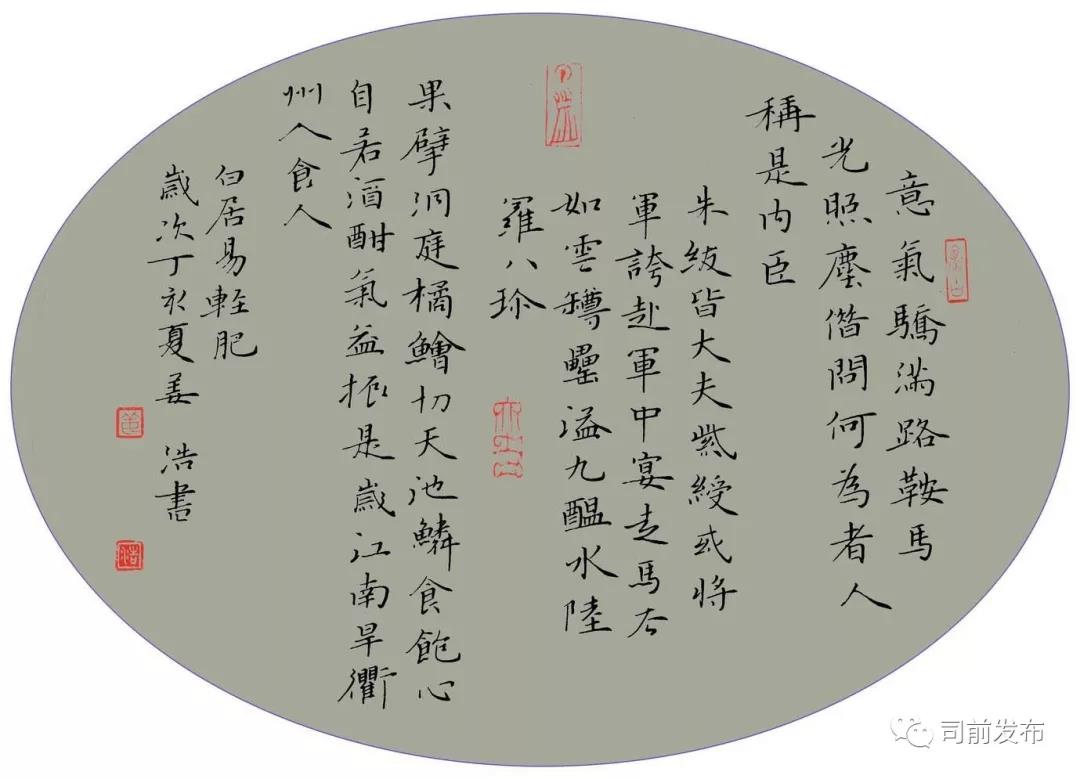 意氣驕滿路鞍馬
光照塵借問何為者人
稱是内臣
朱紱皆大夫紫綬或將
軍誇赴軍中宴走馬去
如雲罇罍溢九醞水陸
羅八珍
果擘洞庭橘鱠切天池鱗食飽心
自若酒酣氣益振是歲江南旱衢
州人食人
白居易輕肥
歲次丁酉夏姜浩書
司前发布